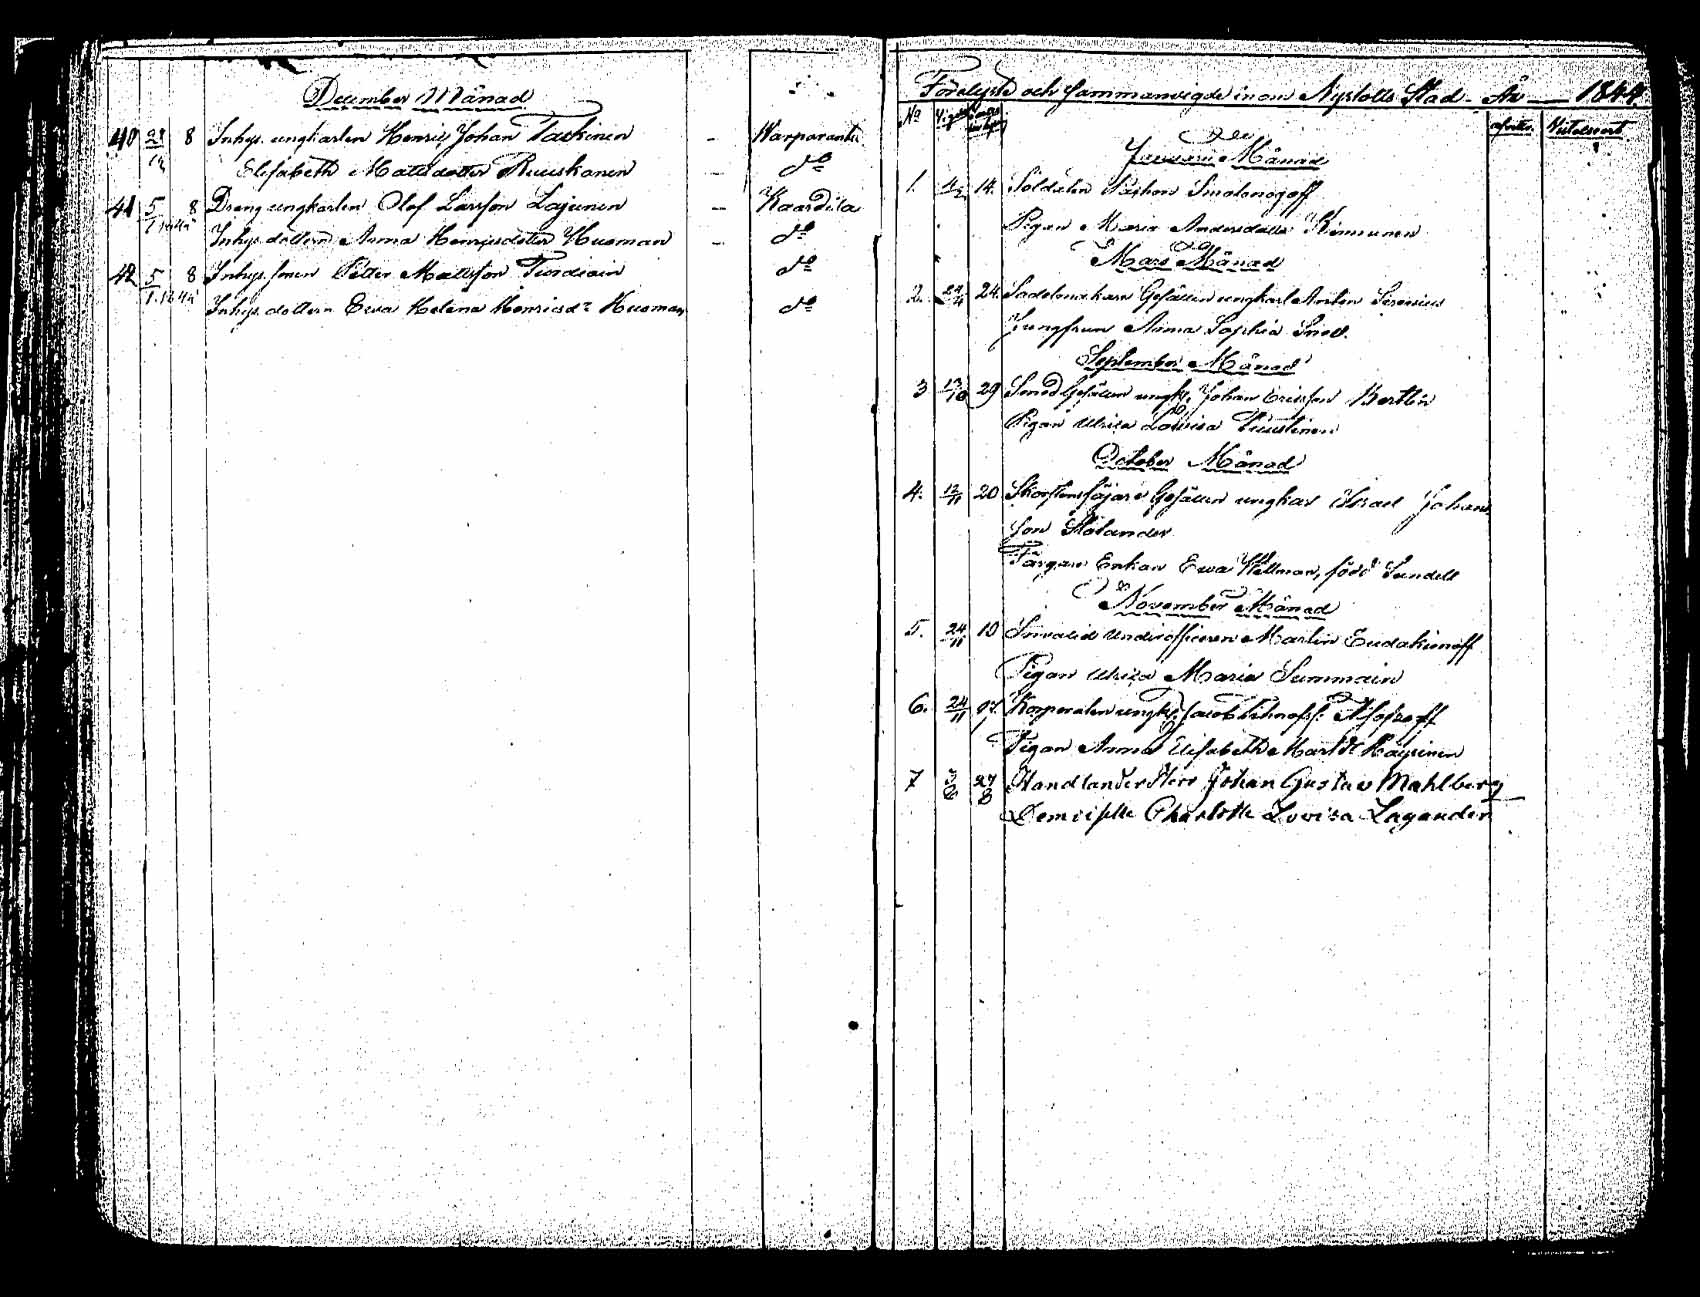 December Månad
40 28/12 8 Inhys. ungkarlen Henric Johan Taskinen - Warparanta
Elisabeth Mattsdotter Ruuskanen - do
41 5/1 1844 8 Dreng ungkarlen Olof Larsson Lajunen - Kaardila
Inhys. dottern Anna Henricsdotter Husman - do
42 5/1 1844 8 Inhys. sonen Petter Mattsson Turdiain do
Inhys. dottern Ewa Helena Henricsdr Husman do
Förelyste och sammanvigde inom Nyslotts Stad - År - 1844
No
Januari Månad
1. 14. Soldaten Smolonogoff
Pigan Maria Andersdotter Kinnunen
Mars Månad
2. 24. Sadelmakare Gesällen ungkarl Anton Sirenius
Jungfrun Anna Sophia Snell.
September Månad
3 13/10 29 Smed Gesällen ungk. Johan Ericsson Bertlin
Pigan Ulrica Lovisa Puustinen
October Månad
4. 12/11 20 Skorstensfejare Gesällen ungkar Israel Johans
son Stolander
Färgare Enkan Ewa Wellman, född Sundell
November Månad
5. 24/11 10 Invalid Underofficeren Martin Eudokimoff
Pigan Ulrica Maria Summain
6. 24/11 17. Korporalen ungk. Jacob
Pigan Anna Elisabeth Martdr Käyhinen
7 27 Handlander Herr Johan Gustav Mahlberg
Demoiselle Charlotte Lovisa Lagander